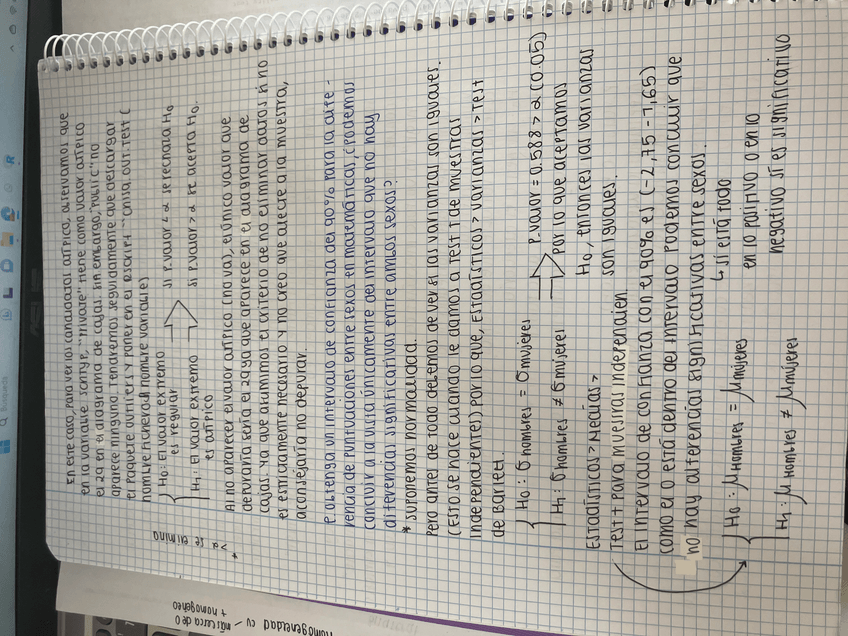 En este caso, para ver los candidatos atípico, observamos que
en la variable schtyp, "private" tiene como valor atípico
el 29 en el diagrama de cajas. Sin embargo, "Public" no
aparece ninguno. Tendremos seguidamente que descargar
el paquete outliers y poner en el escript " chisq.out.test (
nombre fichero $ nombre variable)
H0: El valor extremo
es regular
si Pvalor < α se rechaza H0
H1: El valor extremo
es atípico
si Pvalor > α se acepta H0.
* >α se elimina
Al no aparecer el valor atípico (no va), el único valor que
depuraría sería el 29 que aparece en el diagrama de
cajas. Ya que asumimos el criterio de no eliminar datos si no
es estrictamente necesario y no creo que afecte a la muestra,
aconsejaría no depurar.
e obtenga un intervalo de confianza del 90% para la dife-
rencia de puntuaciones entre sexos en matemáticas, ¿podemos
concluir a la vista únicamente del intervalo que no hay
diferencias significativas entre ambos sexos?
* suponemos normalidad.
Pero antes de todo debemos de ver si las varianzas son iguales.
(Esto se hace cuando le damos a Test T de muestras
independientes) por lo que, Estadísticos > varianzas > Test
de Bartlett.
H0: σhombres = σmujeres
H1: σhombres ≠ σmujeres
Pvalor = 0.588 > α (0.05)
por lo que aceptamos
H0, entonces las varianzas
son iguales.
Estadísticos > Medias >
Test t para muestras independien
El intervalo de confianza con el 90% es (-2,75 - 1,65)
como el 0 está dentro del intervalo podemos concluir que
no hay diferencias significativas entre sexos.
↳ si está todo
en lo positivo o en lo
negativo sí es significativo
H0: μHombres = μmujeres
H1: μHombres ≠ μmujeres
homogeneidad cv – más cerca de 0
+ homogéneo
Búsqueda